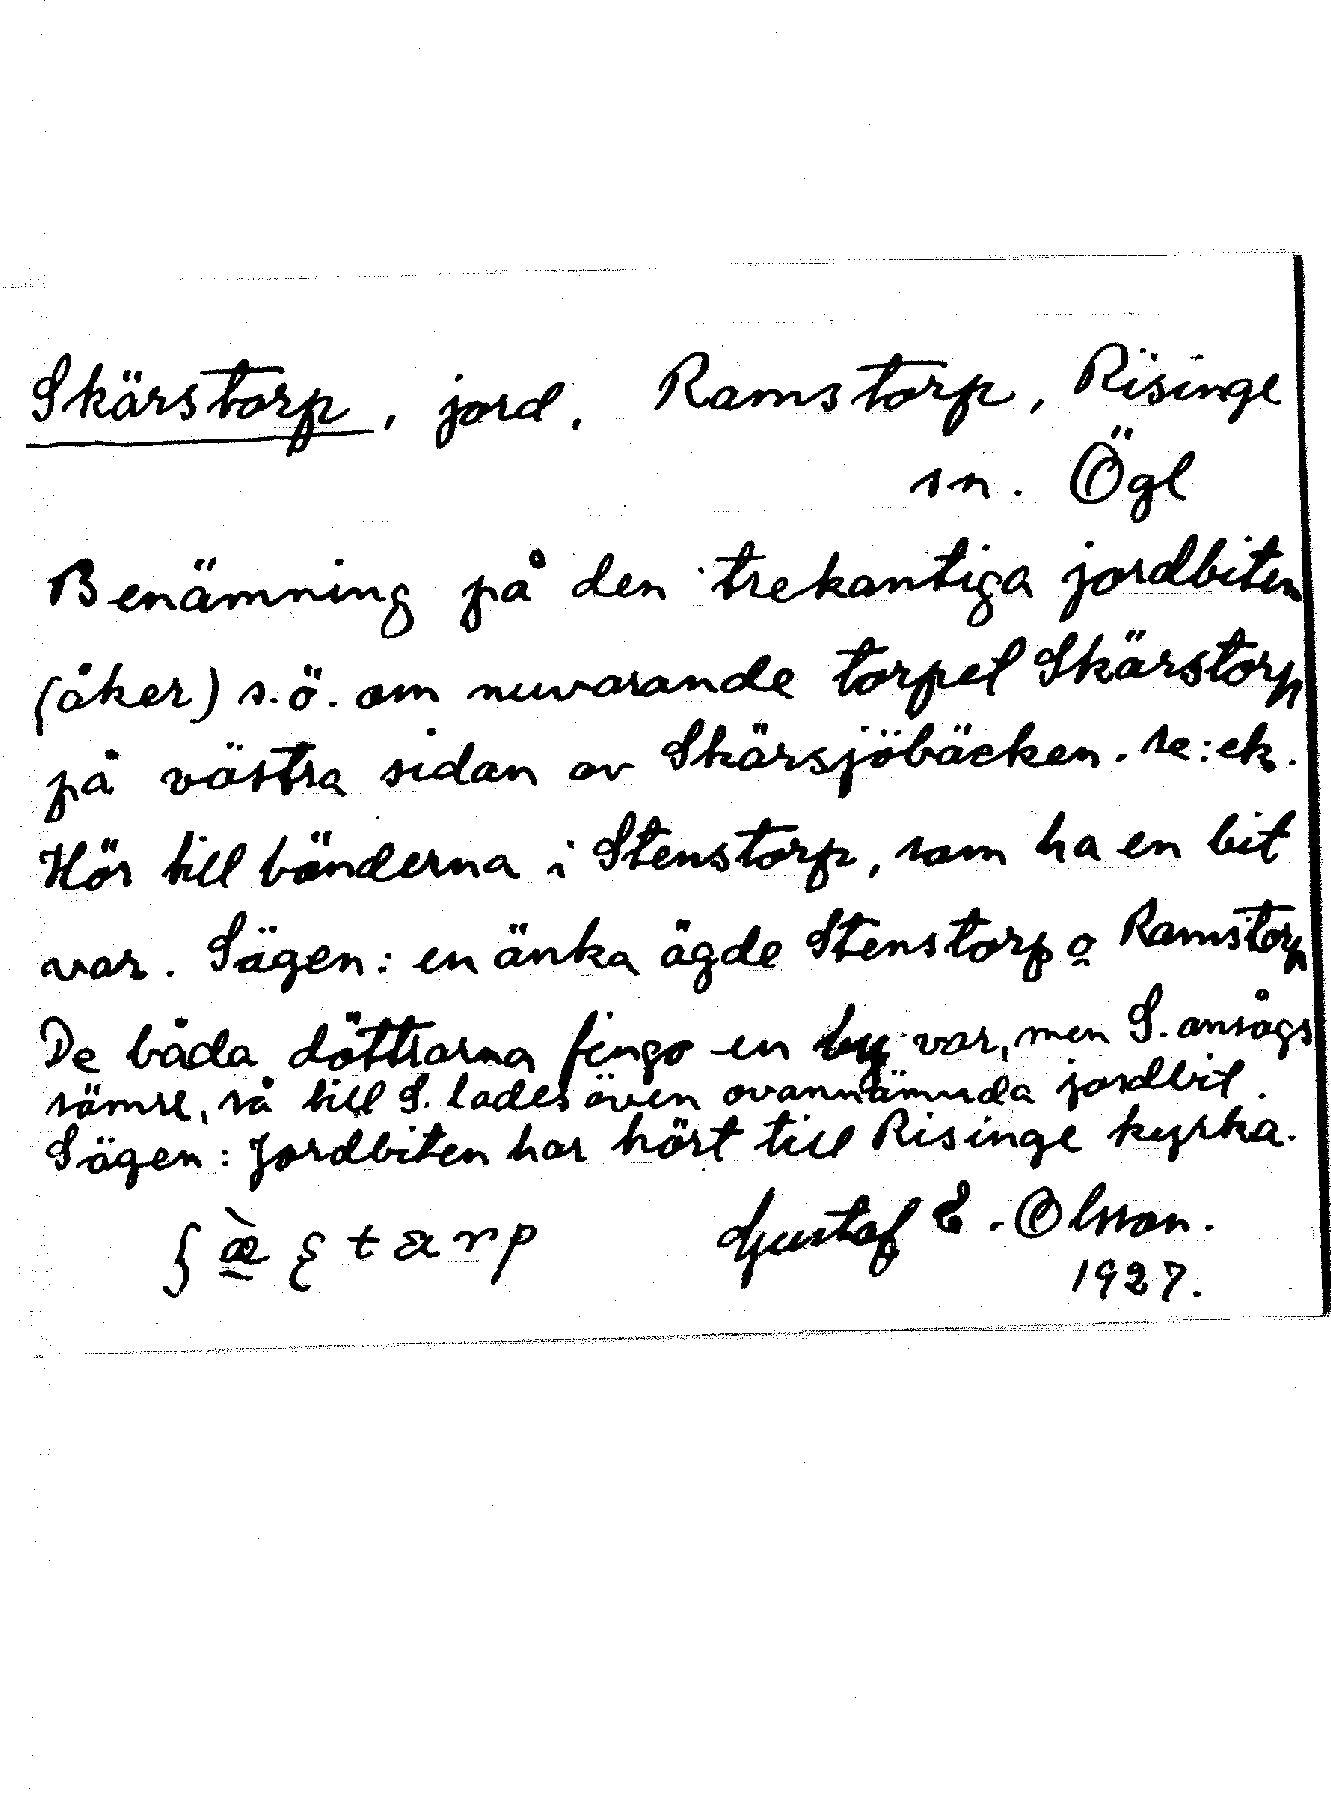 Skärstorp, jord. Ramstorp, Risinge
sn. Ögl
Benämning på den trekantiga jordbiten
(åker) s.ö. om nuvarande torpet Skärstorp
på västra sidan av Skärsjöbäcken. se: ek.
Hör till bönderna i Stenstorp, som ha en bit
var. Sägen: en änka ägde Stenstorp o Ramstorp
De båda döttrarna fingo en by var, men S. ansågs
sämre, så till S. lades även ovannämnda jordbit.
Sägen: Jordbiten har hört till Risinge kyrka.
Gustaf E. Olsson.
1927.